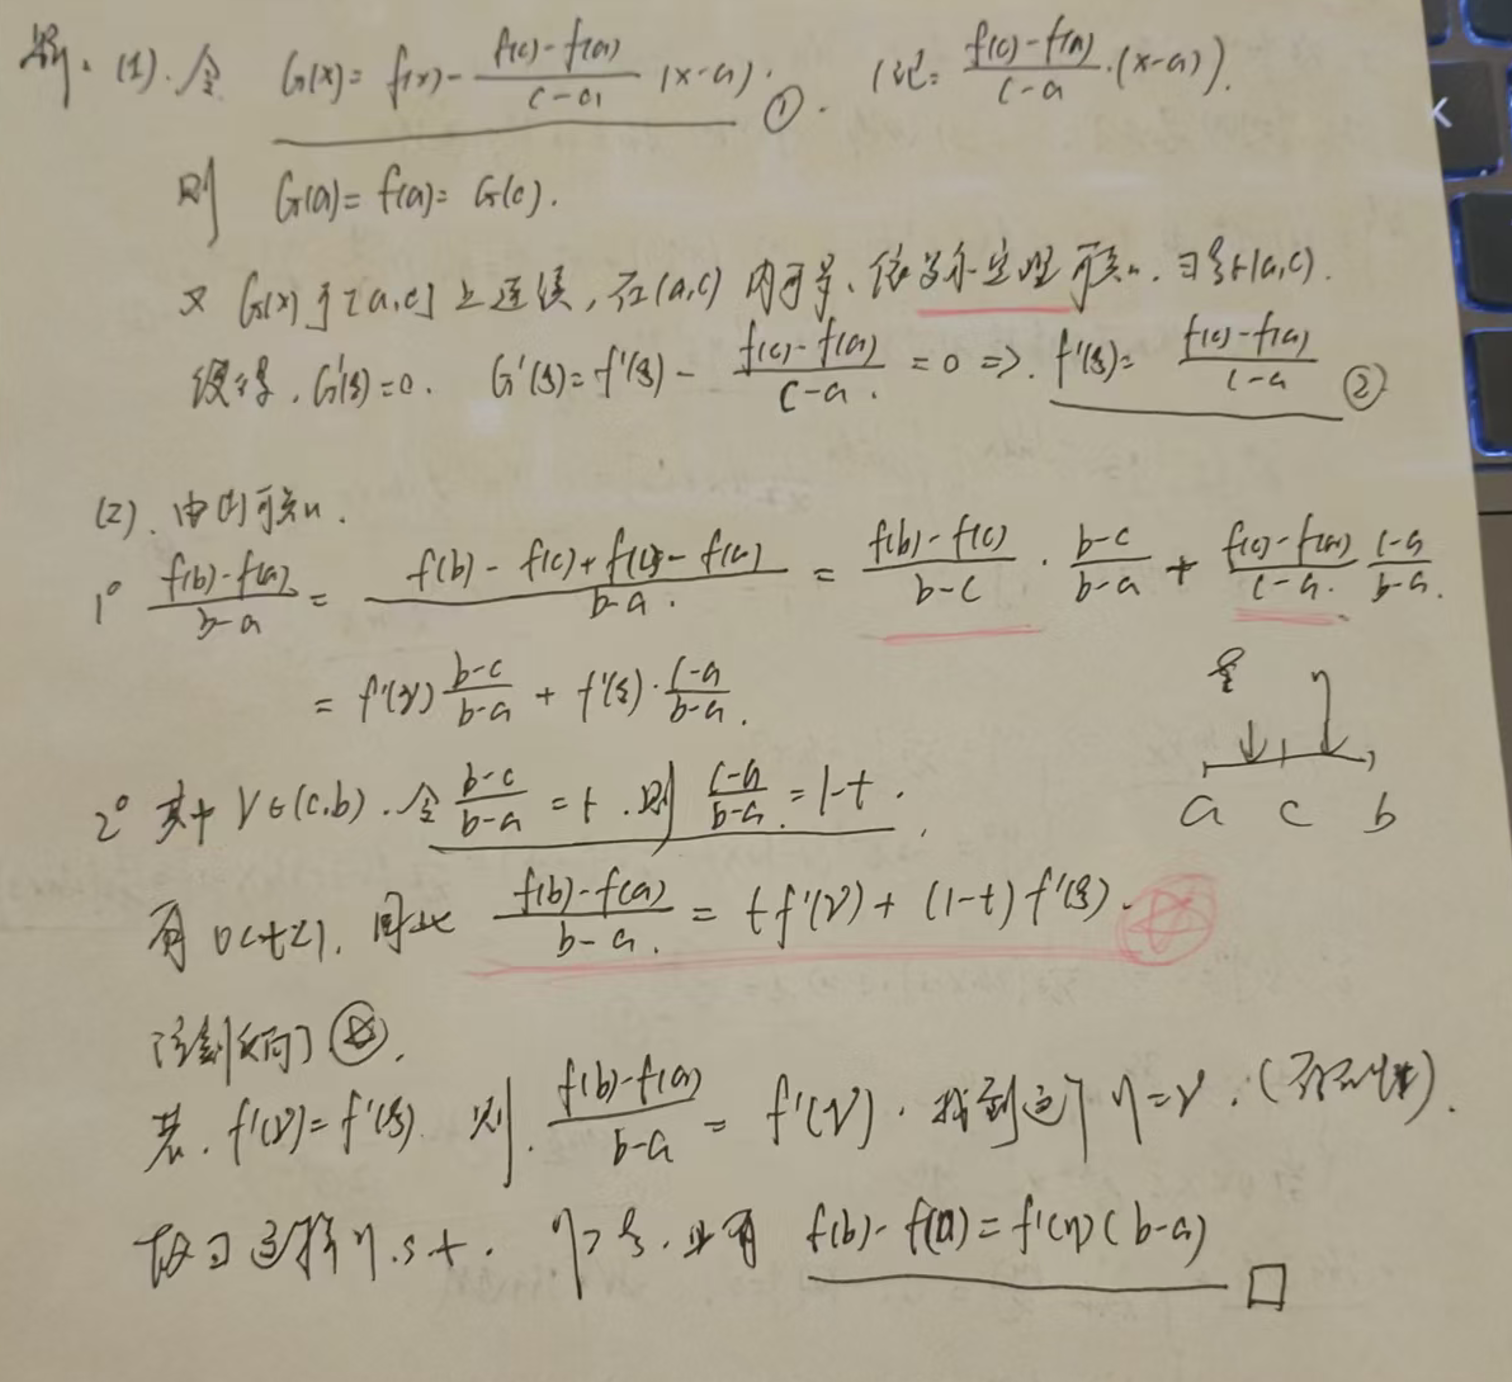 解. (1). 令 G(x) = f(x) - \frac{f(c)-f(a)}{c-a} (x-a). ①. (记: \frac{f(c)-f(a)}{c-a}·(x-a)).
则 G(a) = f(a) = G(c).
又 G(x) 于 [a,c] 上连续, 在(a,c) 内可导, 依罗尔定理可知. ∃ξ∈(a,c).
使得, G'(ξ)=0. G'(ξ)= f'(ξ) - \frac{f(c)-f(a)}{c-a}. = 0 ⇒. f'(ξ)= \frac{f(c)-f(a)}{c-a} ②
(2). 由(1)可知.
1° \frac{f(b)-f(a)}{b-a} = \frac{f(b)-f(c)+f(c)-f(a)}{b-a}. = \frac{f(b)-f(c)}{b-c} · \frac{b-c}{b-a} + \frac{f(c)-f(a)}{c-a}. \frac{c-a}{b-a}.
= f'(γ) \frac{b-c}{b-a} + f'(ξ)·\frac{c-a}{b-a}.
ξ η
a c b
2° 其中 γ∈(c,b). 令 \frac{b-c}{b-a} = t. 则 \frac{c-a}{b-a}. = 1-t.
有 0<t<1. 因此 \frac{f(b)-f(a)}{b-a}. = t f'(γ) + (1-t) f'(ξ).
注意到 ☆.
若. f'(γ) = f'(ξ). 则. \frac{f(b)-f(a)}{b-a} = f'(γ). 找到这个 η=γ. (存在性).
故可选择η. s.t. η>ξ. 且有 f(b)-f(a) = f'(η)(b-a) □
K